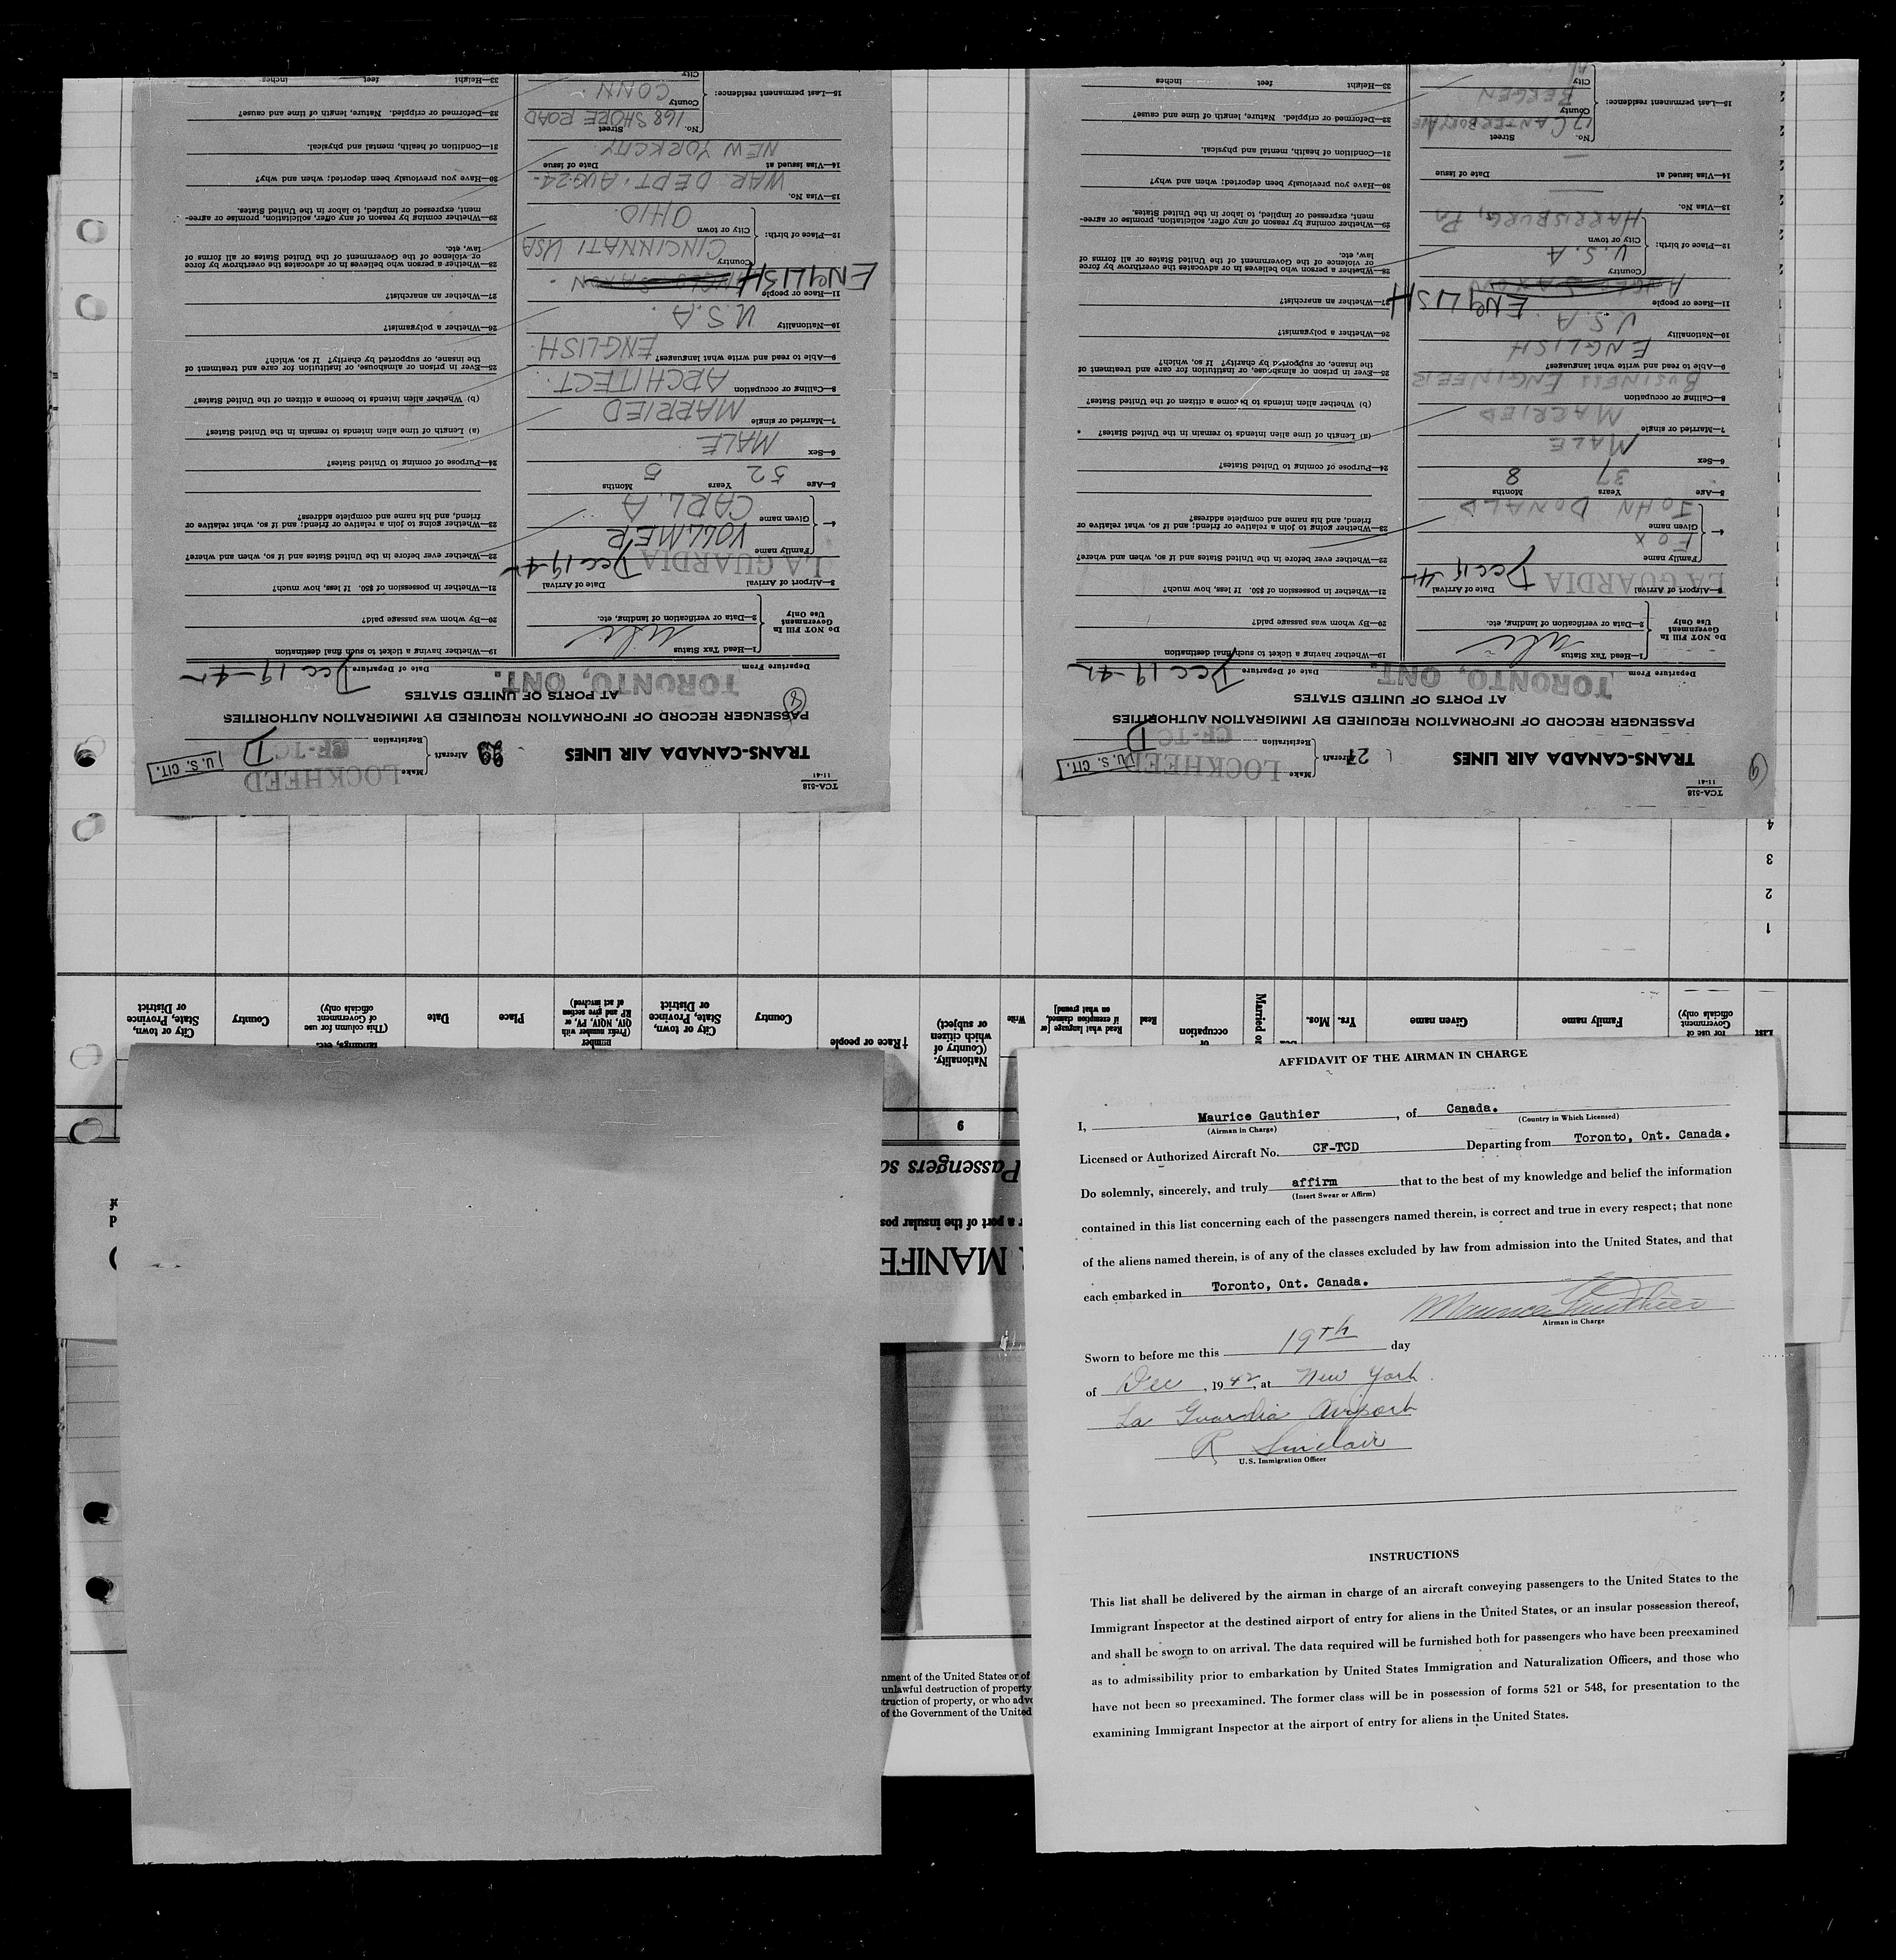 TCA-518
11-41
TRANS-CANADA AIR LINES
Aircraft
Make LOCKHEED
Registration CF-TC D
U. S. CIT.
PASSENGER RECORD OF INFORMATION REQUIRED BY IMMIGRATION AUTHORITIES
AT PORTS OF UNITED STATES
Departure From TORONTO, ONT. Date of Departure Dec 19-42
Do NOT Fill In
Government
Use Only
1—Head Tax Status
2—Data or verification of landing, etc.
3—Airport of Arrival LA GUARDIA Date of Arrival Dec 19-42
4—
Family name VOLLMER
Given name CARL. A
5—Age 52 Years 5 Months
6—Sex MALE
7—Married or single MARRIED
8—Calling or occupation ARCHITECT.
9—Able to read and write what languages? ENGLISH.
10—Nationality U.S.A.
11—Race or people ENGLISH
12—Place of birth:
Country CINCINNATI USA
City or town OHIO
13—Visa No. WAR. DEPT. AUG-24-
14—Visa issued at NEW YORK CITY. Date of issue
15—Last permanent residence:
No. Street 168 SHORE ROAD
County CONN.
City
19—Whether having a ticket to such final destination
20—By whom was passage paid?
21—Whether in possession of $50. If less, how much?
22—Whether ever before in the United States and if so, when and where?
23—Whether going to join a relative or friend; and if so, what relative or
friend, and his name and complete address?
24—Purpose of coming to United States?
(a) Length of time alien intends to remain in the United States?
(b) Whether alien intends to become a citizen of the United States?
25—Ever in prison or almshouse, or institution for care and treatment of
the insane, or supported by charity? If so, which?
26—Whether a polygamist?
27—Whether an anarchist?
28—Whether a person who believes in or advocates the overthrow by force
or violence of the Government of the United States or all forms of
law, etc.
29—Whether coming by reason of any offer, solicitation, promise or agree-
ment, expressed or implied, to labor in the United States.
30—Have you previously been deported; when and why?
31—Condition of health, mental and physical.
32—Deformed or crippled. Nature, length of time and cause?
33—Height feet inches
TCA-518
11-41
TRANS-CANADA AIR LINES
27 Aircraft
Make LOCKHEED
Registration CF-TC D
U. S. CIT.
PASSENGER RECORD OF INFORMATION REQUIRED BY IMMIGRATION AUTHORITIES
AT PORTS OF UNITED STATES
Departure From TORONTO, ONT. Date of Departure Dec 19-42
Do NOT Fill In
Government
Use Only
1—Head Tax Status
2—Data or verification of landing, etc.
3—Airport of Arrival LA GUARDIA Date of Arrival Dec 19-42
4—
Family name FOX
Given name JOHN DONALD
5—Age 37 Years 8 Months
6—Sex MALE
7—Married or single MARRIED
8—Calling or occupation BUSINESS ENGINEER
9—Able to read and write what languages? ENGLISH
10—Nationality U.S.A.
11—Race or people ENGLISH
12—Place of birth:
Country U.S.A
City or town HARRISBURG, PA
13—Visa No.
14—Visa issued at Date of issue
15—Last permanent residence:
No. Street 17 CANTERBURY AVE
County BERGEN
City
19—Whether having a ticket to such final destination
20—By whom was passage paid?
21—Whether in possession of $50. If less, how much?
22—Whether ever before in the United States and if so, when and where?
23—Whether going to join a relative or friend; and if so, what relative or
friend, and his name and complete address?
24—Purpose of coming to United States?
(a) Length of time alien intends to remain in the United States?
(b) Whether alien intends to become a citizen of the United States?
25—Ever in prison or almshouse, or institution for care and treatment of
the insane, or supported by charity? If so, which?
26—Whether a polygamist?
27—Whether an anarchist?
28—Whether a person who believes in or advocates the overthrow by force
or violence of the Government of the United States or all forms of
law, etc.
29—Whether coming by reason of any offer, solicitation, promise or agree-
ment, expressed or implied, to labor in the United States.
30—Have you previously been deported; when and why?
31—Condition of health, mental and physical.
32—Deformed or crippled. Nature, length of time and cause?
33—Height feet inches
MANIFE
r a port of the insular pos
Passengers sa
6
List
for use of
Government
officials only)
Family name
Given name
Yrs.
Mos.
Married or
or
occupation
Read
Read what language [or
if exemption claimed,
on what ground]
Write
Nationality.
(Country of
which citizen
or subject)
†Race or people
Country
City or town,
State, Province
or District
number
(Prefix number with
QIV, NQIV, PV, or
RP and give section
of act involved)
Place
Date
landings, etc.
(This column for use
of Government
officials only)
Country
City or town,
State, Province
or District
1
2
3
4
nment of the United States or of
unlawful destruction of property
truction of property, or who advo
of the Government of the United
AFFIDAVIT OF THE AIRMAN IN CHARGE
I, Maurice Gauthier, of Canada.
(Airman in Charge) (Country in Which Licensed)
Licensed or Authorized Aircraft No. CF-TCD Departing from Toronto, Ont. Canada.
Do solemnly, sincerely, and truly affirm that to the best of my knowledge and belief the information
(Insert Swear or Affirm)
contained in this list concerning each of the passengers named therein, is correct and true in every respect; that none
of the aliens named therein, is of any of the classes excluded by law from admission into the United States, and that
each embarked in Toronto, Ont. Canada.
Maurice Gauthier
Airman in Charge
Sworn to before me this 19th day
of Dec, 1942, at New York.
La Guardia Airport
R Sinclair
U.S. Immigration Officer
INSTRUCTIONS
This list shall be delivered by the airman in charge of an aircraft conveying passengers to the United States to the
Immigrant Inspector at the destined airport of entry for aliens in the United States, or an insular possession thereof,
and shall be sworn to on arrival. The data required will be furnished both for passengers who have been preexamined
as to admissibility prior to embarkation by United States Immigration and Naturalization Officers, and those who
have not been so preexamined. The former class will be in possession of forms 521 or 548, for presentation to the
examining Immigrant Inspector at the airport of entry for aliens in the United States.